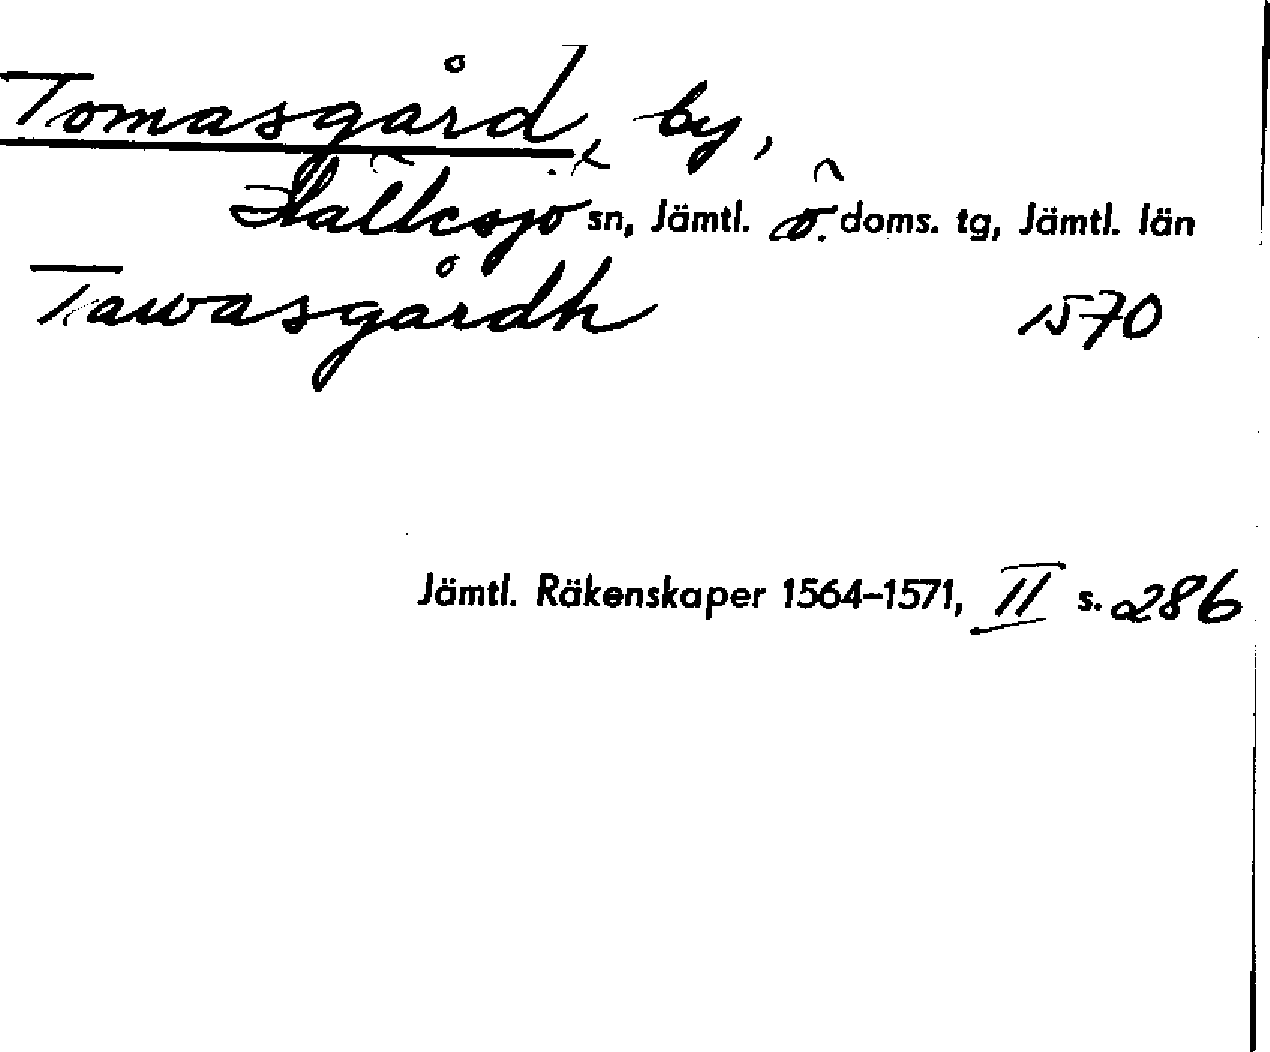 Tomasgård, by,
Hällesjö sn, Jämtl. ö. doms. tg, Jämtl. län
Tawasgårdh 1570
Jämtl. Räkenskaper 1564–1571, II s. 286